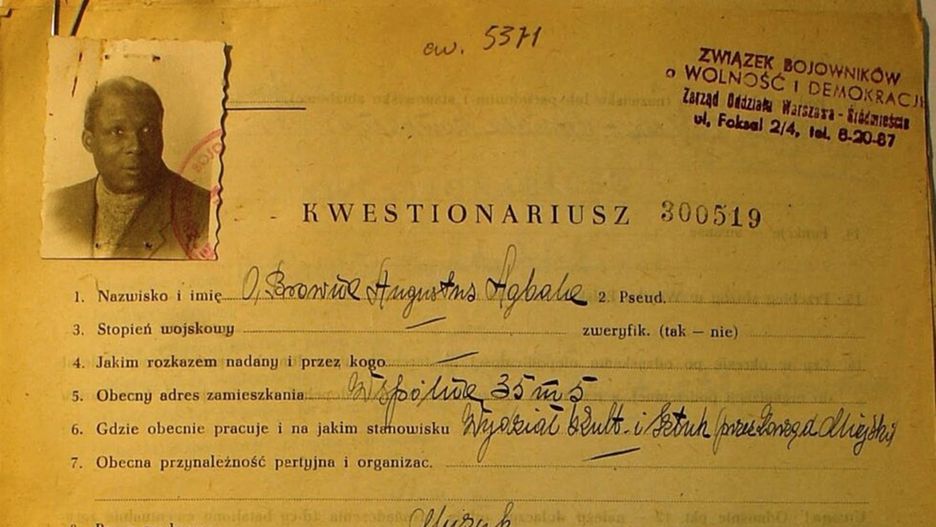 ew. 5371
ZWIĄZEK BOJOWNIKÓW
o WOLNOŚĆ I DEMOKRACJĘ
Zarząd Oddziału Warszawa - Śródmieście
ul. Foksal 2/4, tel. 6-20-87
KWESTIONARIUSZ 300519
1. Nazwisko i imię O, Browne Augustus Agbale 2. Pseud.
3. Stopień wojskowy — zweryfik. (tak – nie)
4. Jakim rozkazem nadany i przez kogo —
5. Obecny adres zamieszkania Wspólna 35 m 5
6. Gdzie obecnie pracuje i na jakim stanowisku Wydział Kult. i Sztuk (przez Zarząd Miejski)
7. Obecna przynależność partyjna i organizac. —
Muzyk